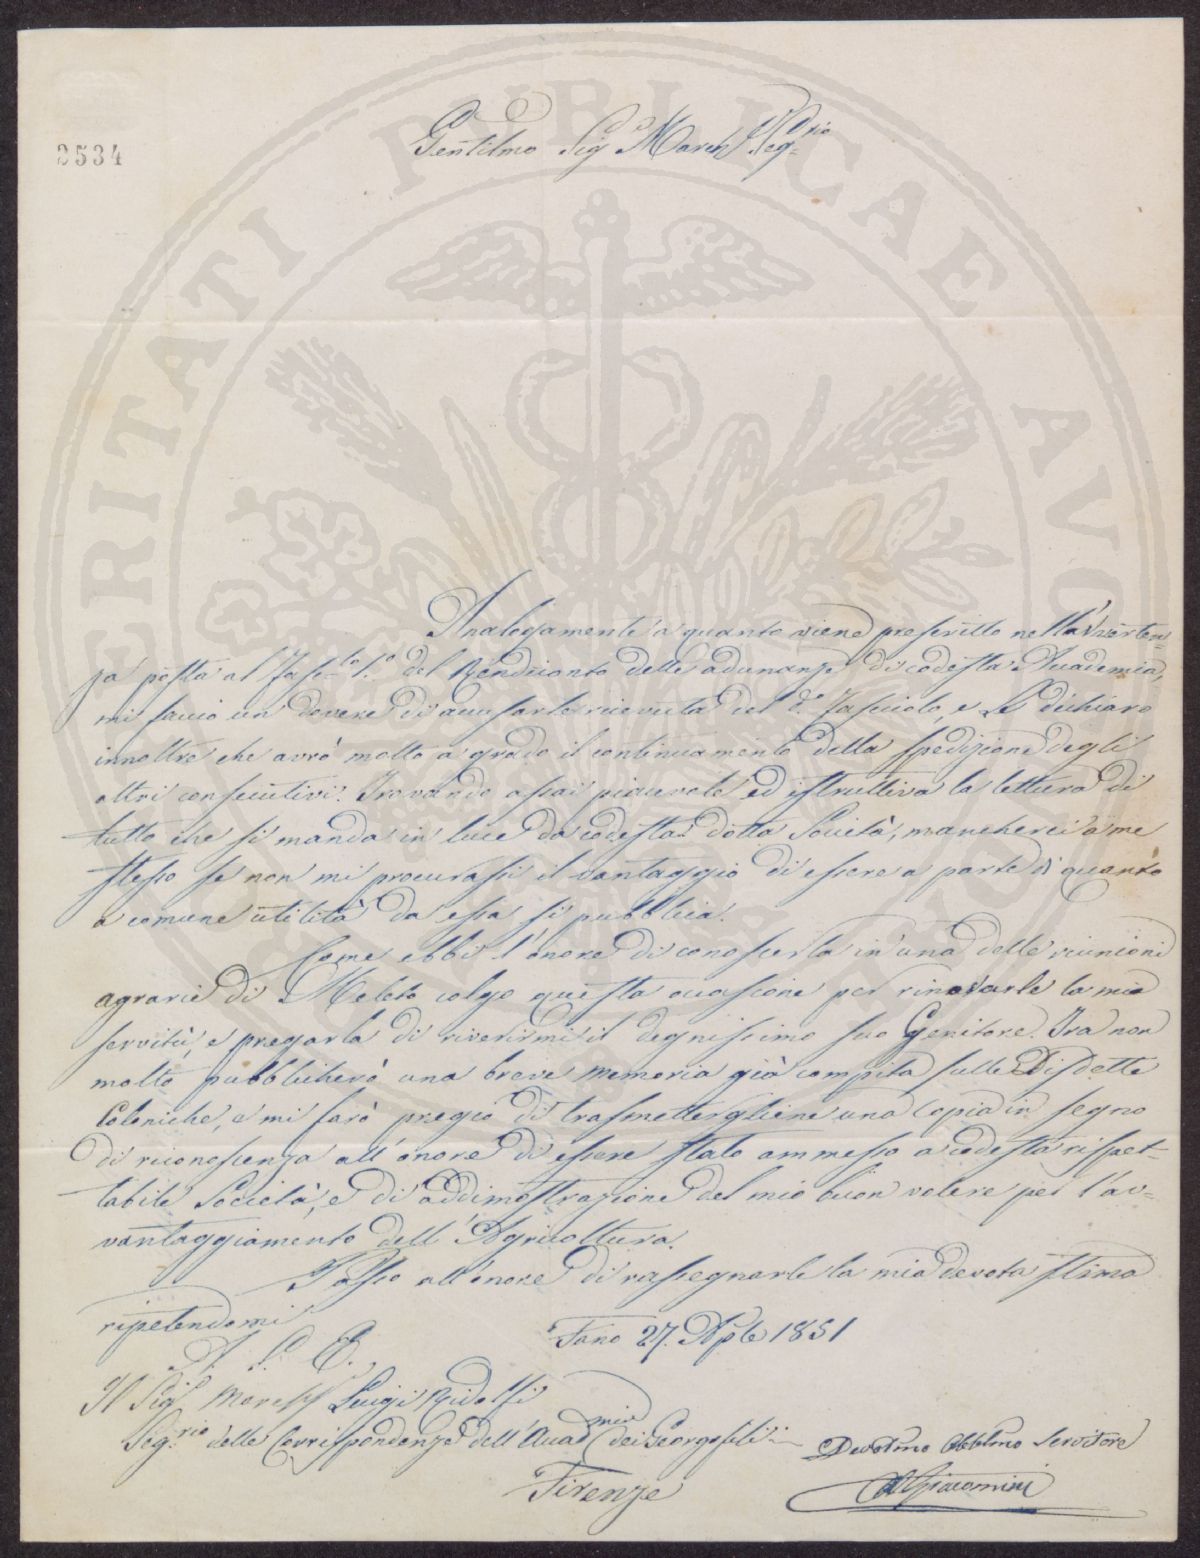 2534
Gentilmo Sig March Segrio
PUBLICAE
Analogamente a quanto viene prescritto nell'Avverten=
za posta al Fascto 1.o del Rendiconto delle adunanze di codesta Accademia,
mi faccio un dovere di accusarle ricevuta del do Fascicolo, e Le dichiaro
innoltre che avrò molto a grado il continuamento della spedizione degli
altri consecutivi. Trovando assai piacevole ed istruttiva la lettura di
tutto che si manda in luce da codesta dotta Società, mancherei a me
stesso se non mi procurassi il vantaggio di essere a parte di quanto
a comune utilità da essa si pubblica.
Come ebbi l'onore di conoscerla in una delle riunioni
agrarie di Meleto colgo questa occasione per rinovarle la mia
servitù, e pregarla di riverirmi il degnissimo suo Genitore. Fra non
molto pubblicherò una breve memoria già compita sulle Disdette
Coloniche, e mi farò pregio di trasmettergliene una Copia in segno
di riconoscenza all'onore di essere stato ammesso a codesta rispet-
tabile Società, e di addimostrazione del mio buon volere per l'av=
vantaggiamento dell'Agricoltura.
Passo all'onore di rassegnarle la mia devota stima
ripetendomi
Fano 27. Aple 1851
A. S. E.
Il Sigr March Luigi Ridolfi
Segrio delle Corrispondenze dell'Accadmia dei Georgofili
Devotmo Obblmo Servitore
Firenze
Giacomini